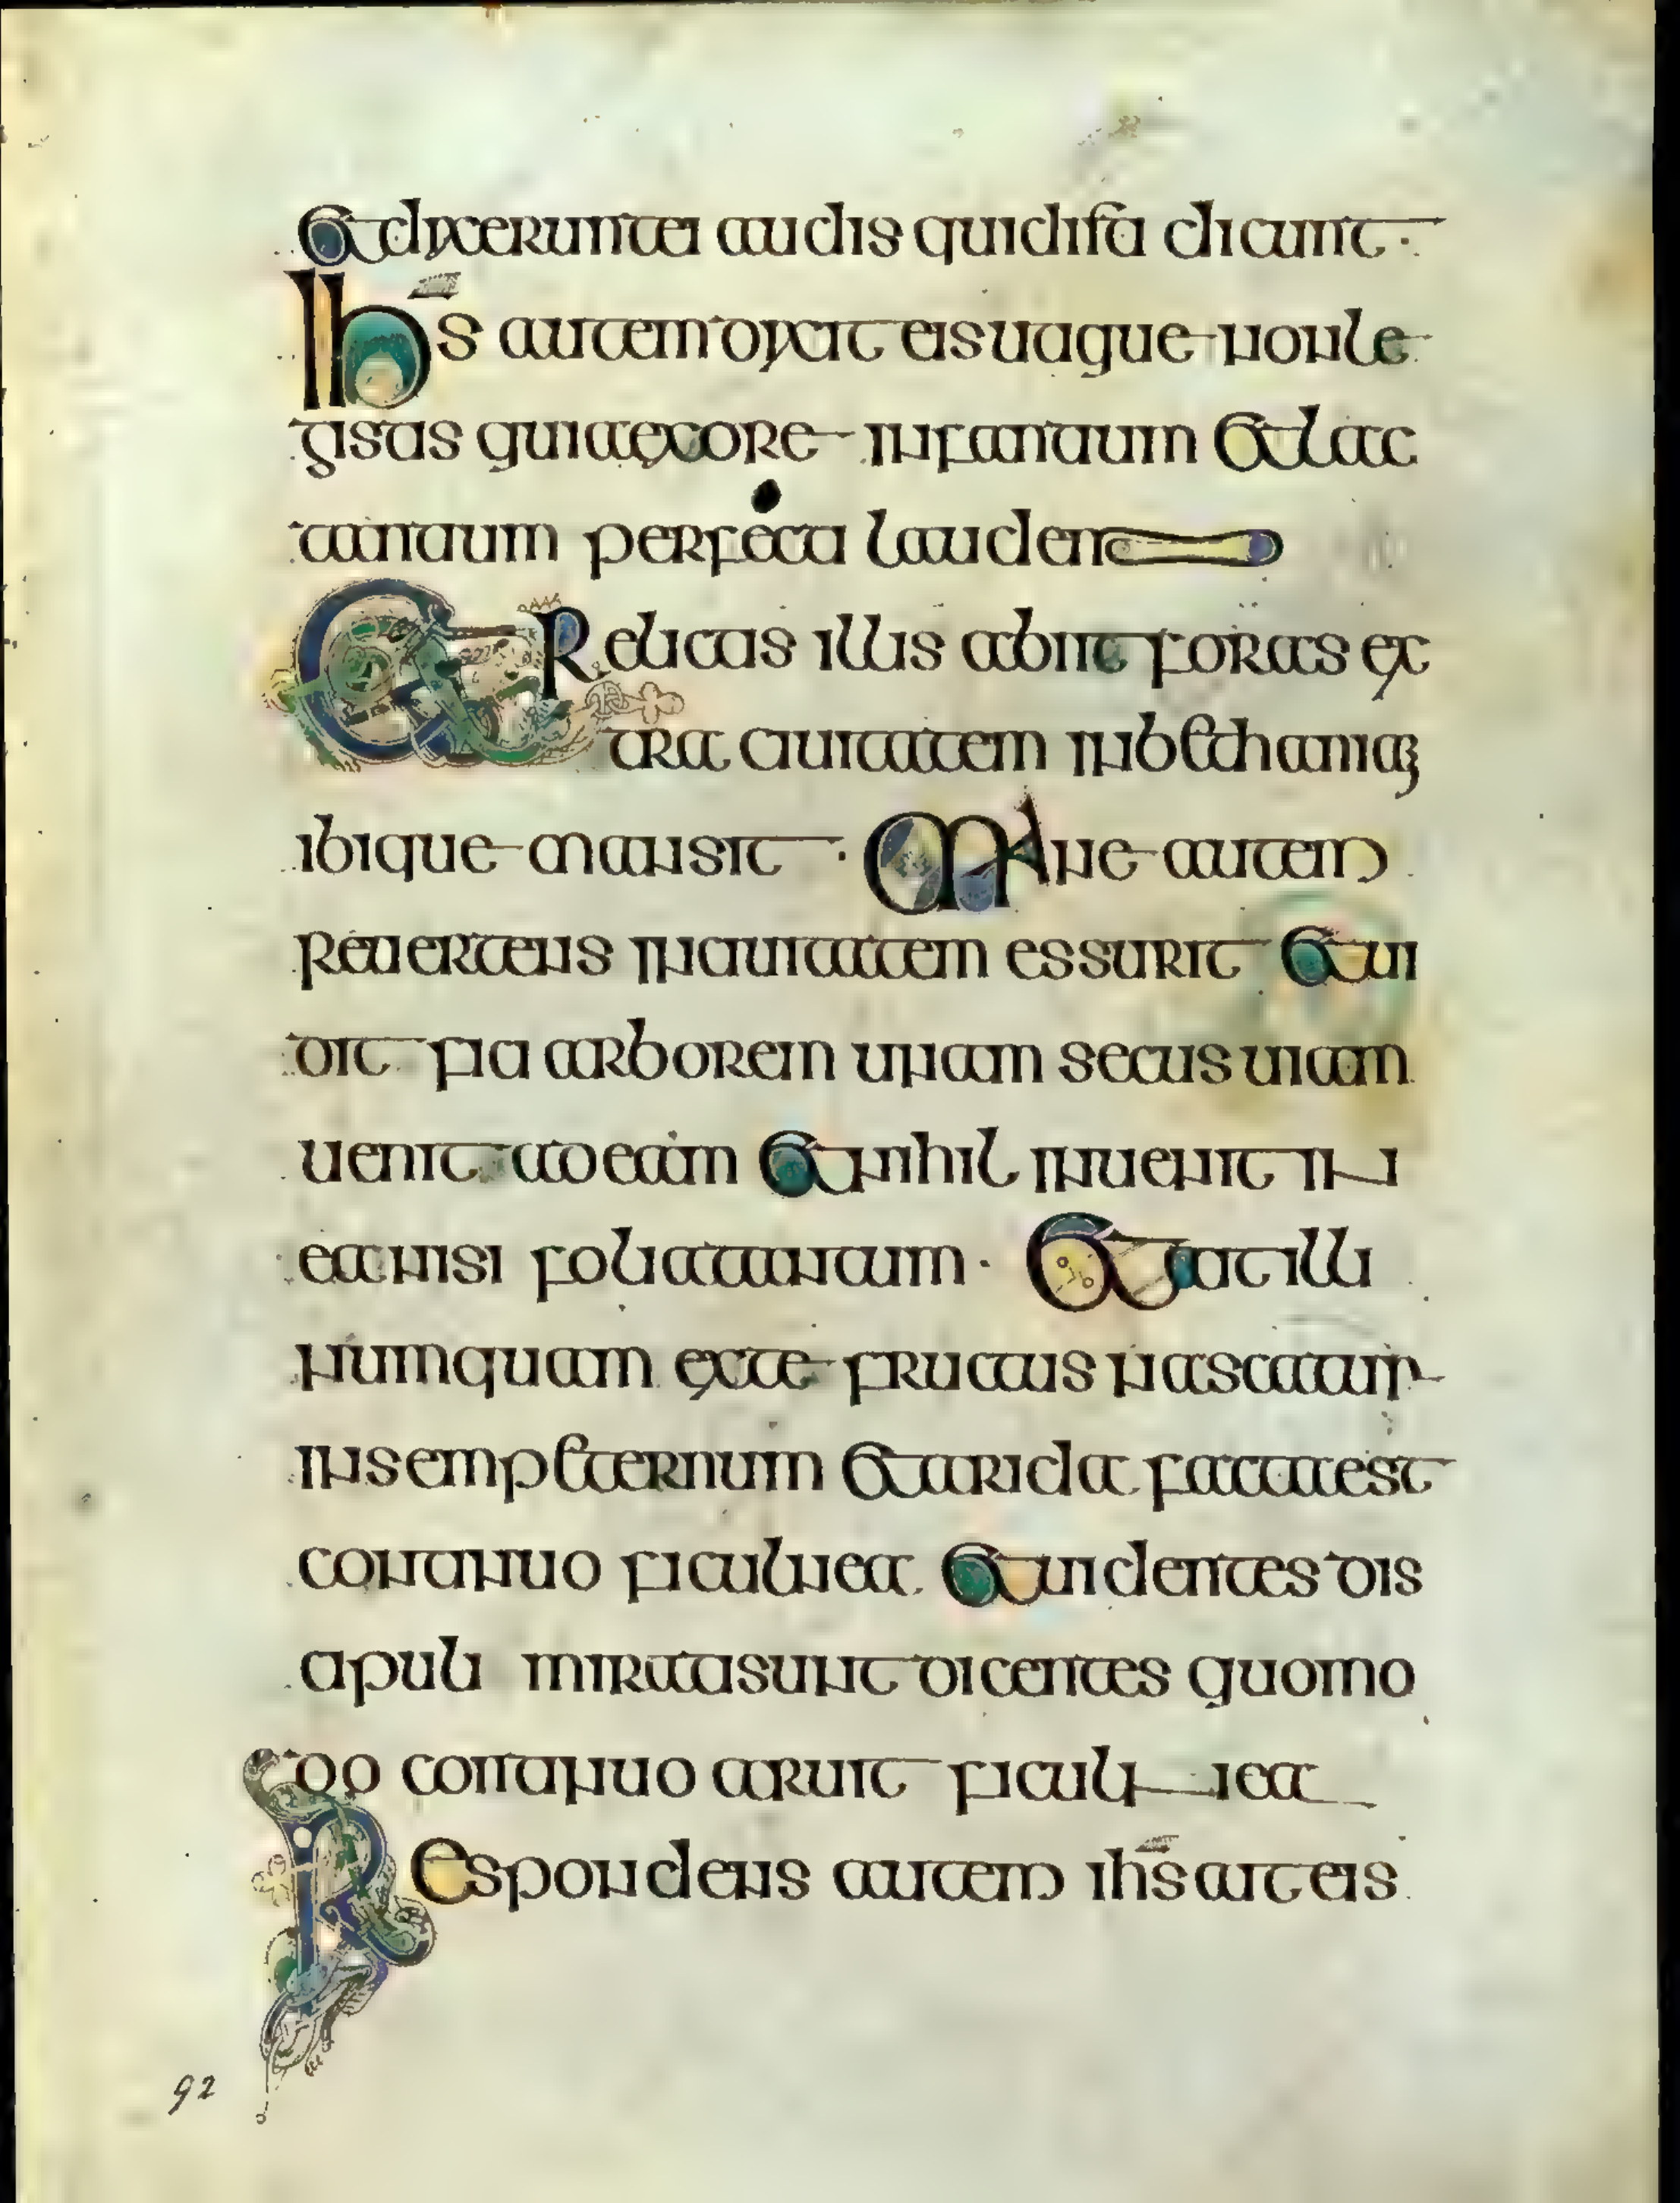 Et dixerunt ei audis quid isti dicunt·
ihs autem dixit eis utique nonle
gistis quia ex ore infantium et lac
tantium perfecti laudem
Et Relictis illis abiit foras ex
tra ciuitatem in bethania
ibique mansit · Mane autem
reuertens in ciuitatem essurit et ui
dit fici arborem unam secus uiam
uenit ad eam et nihil inuenit in
ea nisi folia tantum · Et ait illi
numquam ex te fructus nascatur
in sempeternum et arida facta est
continuo ficulnea et uidentes dis
cipuli mirati sunt dicentes quomo
do continuo aruit ficulnea
Respondens autem ihs ait eis
92